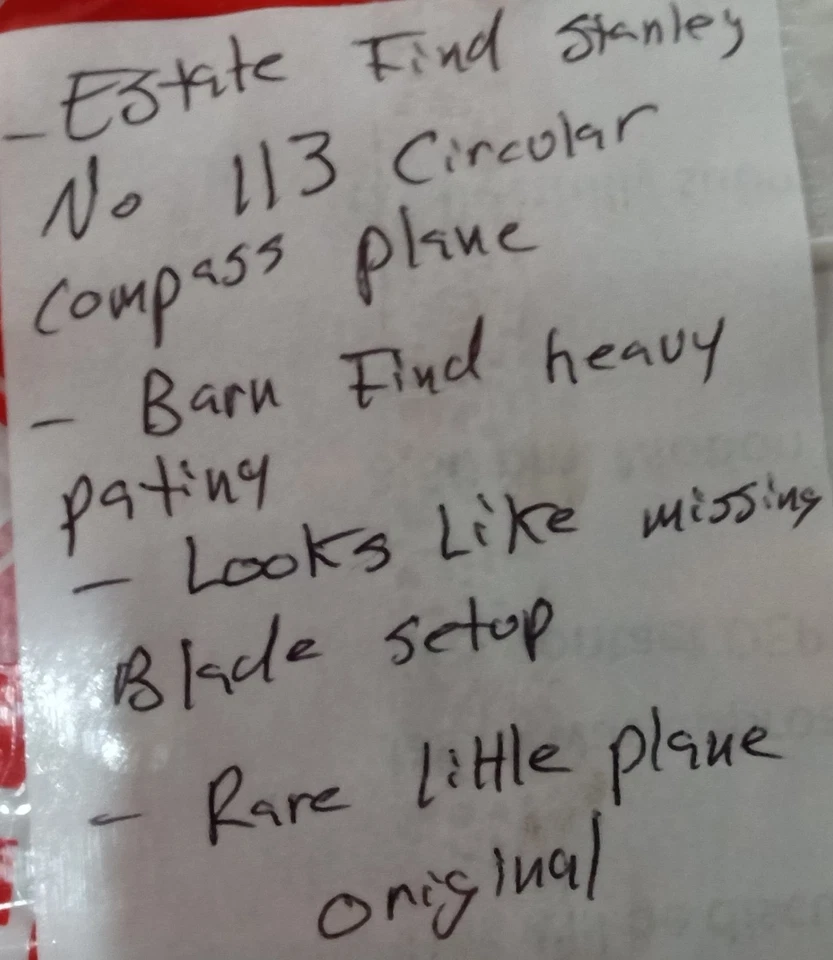 - Estate Find Stanley
No 113 Circular
Compass plane
- Barn Find heavy
patina
- Looks Like missing
Blade setup
- Rare little plane
original